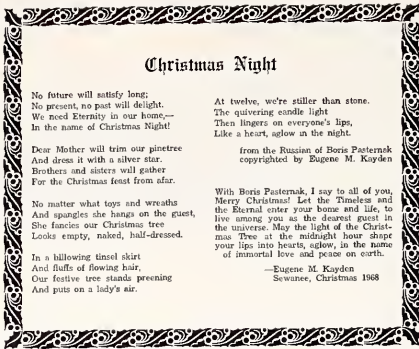 Christmas Night
No future will satisfy long;
No present, no past will delight.
We need Eternity in our home,—
In the name of Christmas Night!
Dear Mother will trim our pinetree
And dress it with a silver star.
Brothers and sisters will gather
For the Christmas feast from afar.
No matter what toys and wreaths
And spangles she hangs on the guest,
She fancies our Christmas tree
Looks empty, naked, half-dressed.
In a billowing tinsel skirt
And fluffs of flowing hair,
Our festive tree stands preening
And puts on a lady's air.
At twelve, we're stiller than stone.
The quivering candle light
Then lingers on everyone's lips,
Like a heart, aglow in the night.
from the Russian of Boris Pasternak
copyrighted by Eugene M. Kayden
With Boris Pasternak, I say to all of you,
Merry Christmas! Let the Timeless and
the Eternal enter your home and life, to
live among you as the dearest guest in
the universe. May the light of the Christ-
mas Tree at the midnight hour shape
your lips into hearts, aglow, in the name
of immortal love and peace on earth.
—Eugene M. Kayden
Sewanee, Christmas 1968